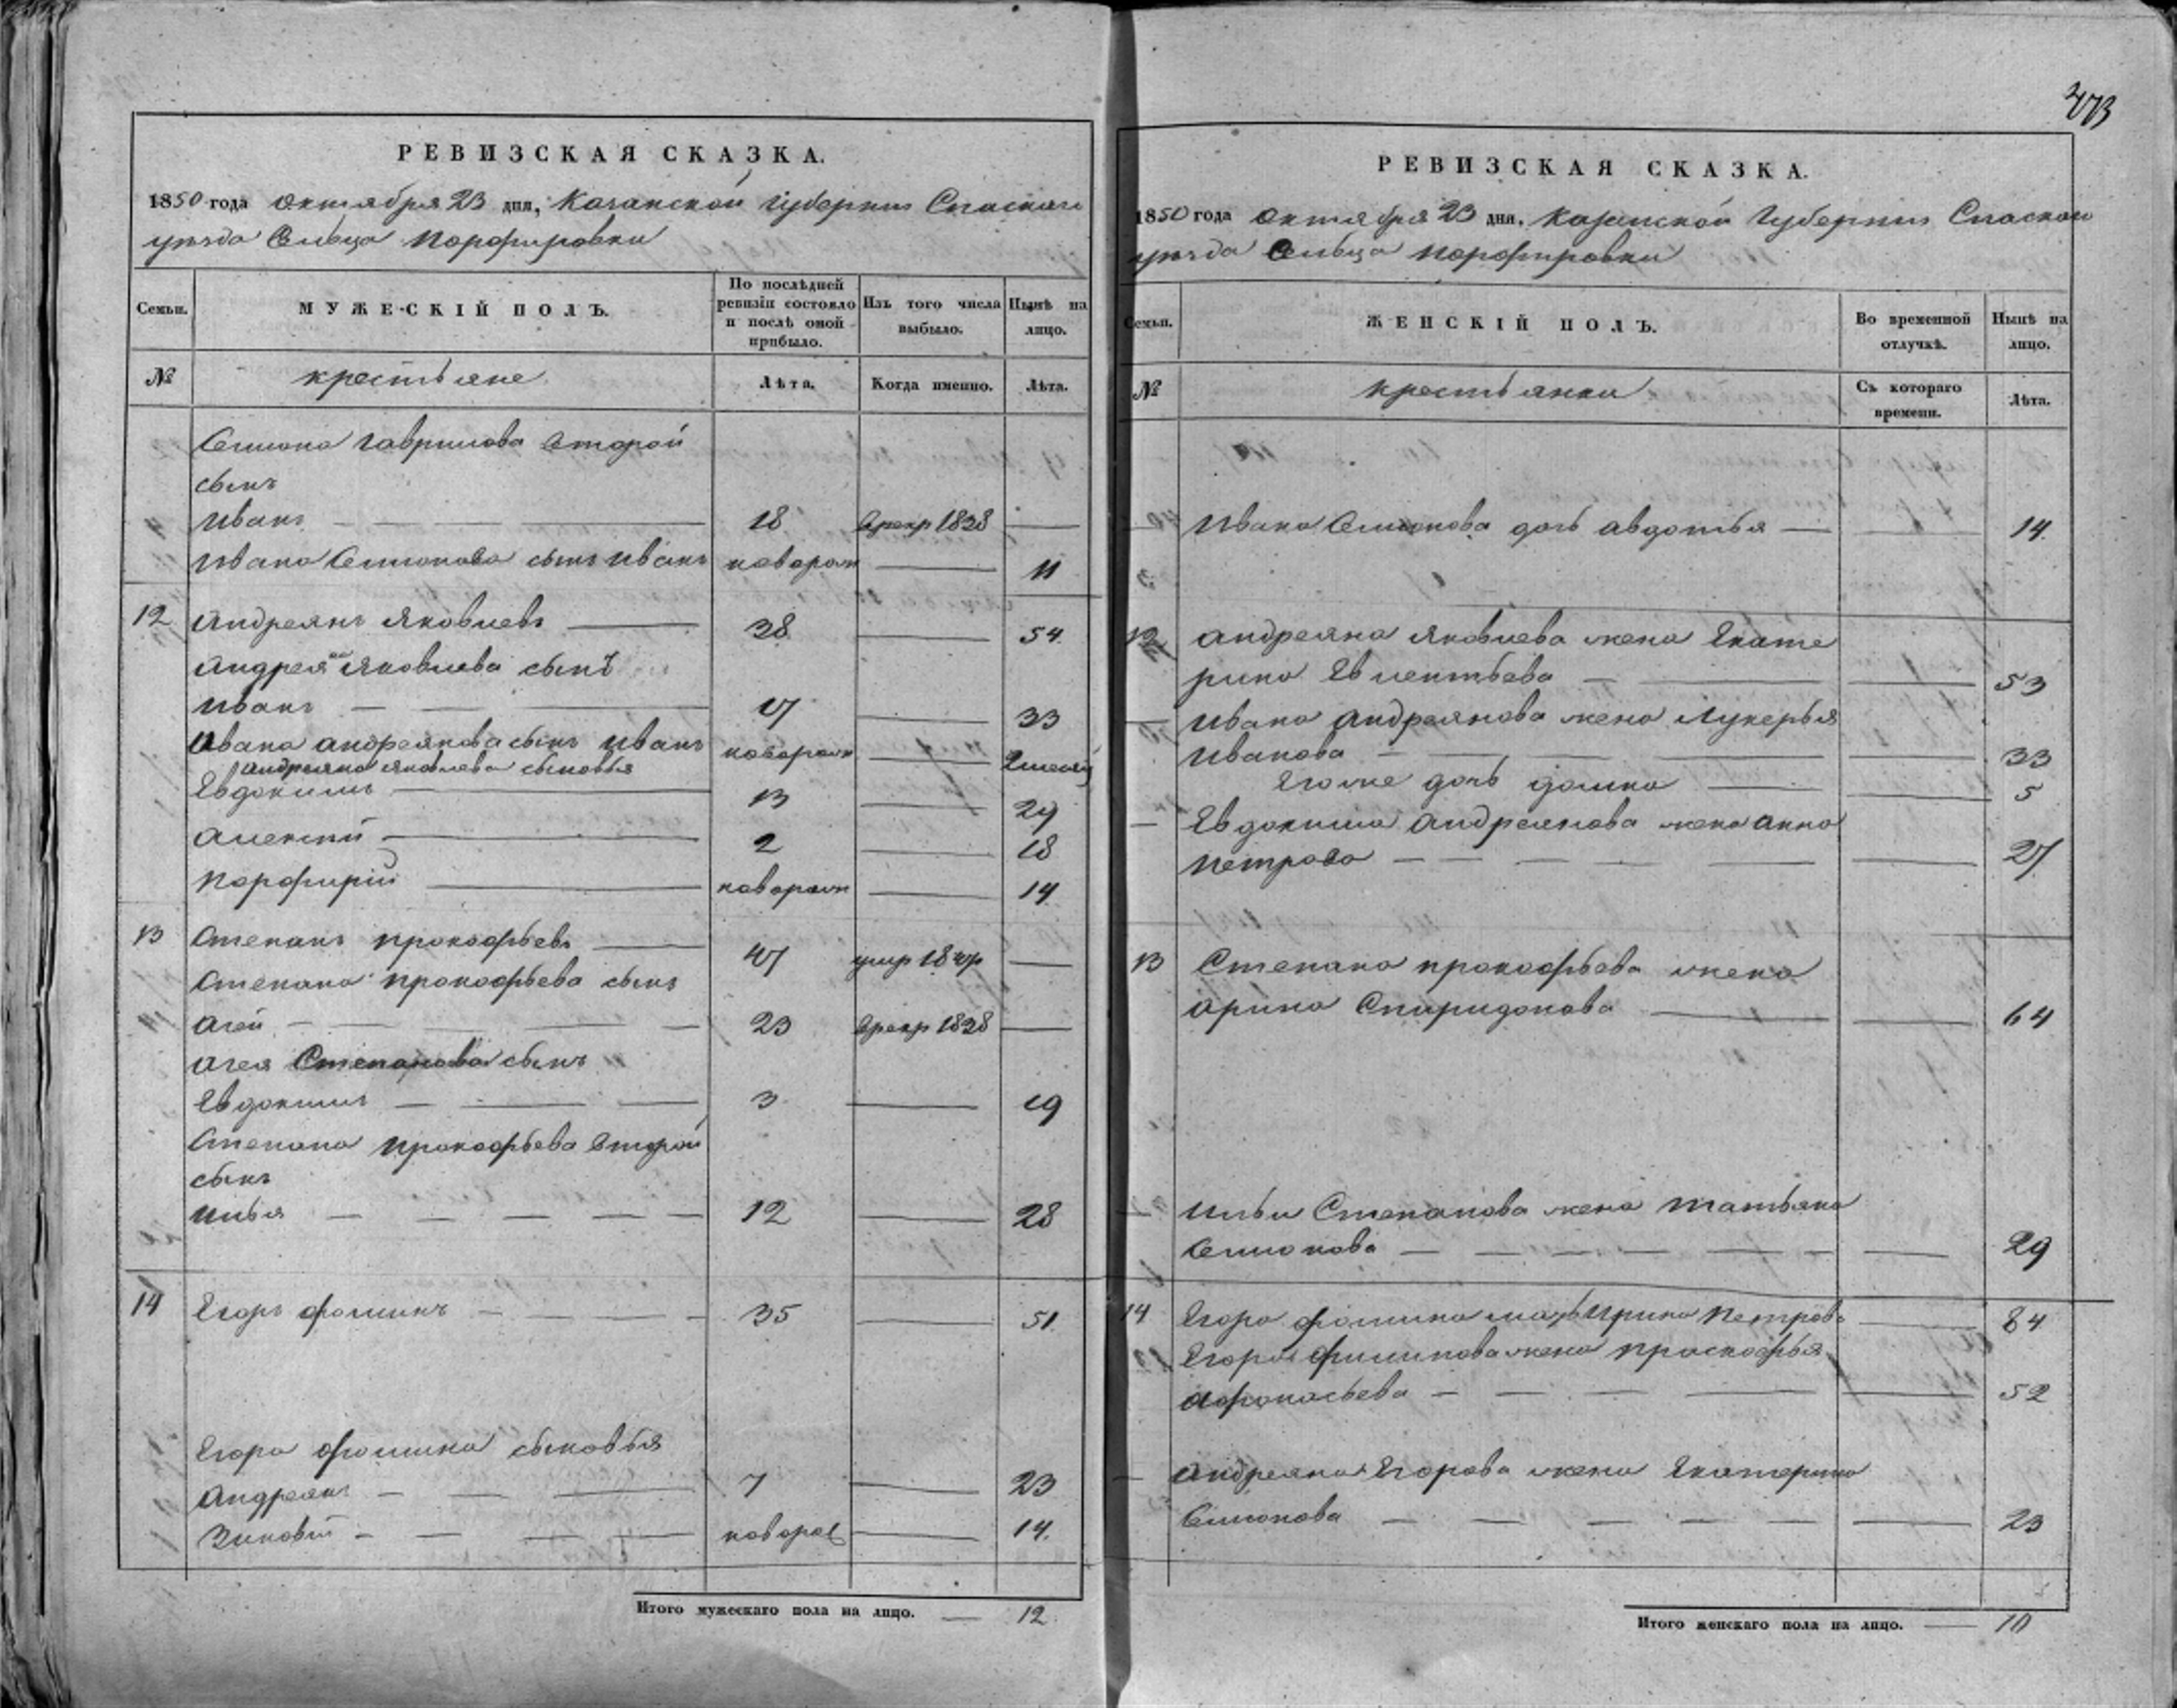 РЕВИЗСКАЯ СКАЗКА.
1850 года октября 23 дня, Казанской Губернии Спаскаго
уѣзда Сельца Порфировки
Семьи.
МУЖЕСКІЙ ПОЛЪ.
По послѣдней ревизіи состояло и послѣ оной прибыло.
Изъ того числа выбыло.
Нынѣ на лицо.
№
крестьяне
Лѣта.
Когда именно.
Лѣта.
Семиона Гаврилова второй
сынъ
Иванъ 18 1838
Ивана Семионова сынъ Иванъ новорож 11
12 Андреянъ Яковлевъ 38 54
Андреяна Яковлева сынъ
Иванъ 17 33
Ивана Андреянова сынъ Иванъ новорож
Андреяна Яковлева сыновья
Евдокимъ 13 29
Алексѣй 2 18
Порфирий новорож 14
13 Степанъ Прокофьевъ 47 умир
Степана Прокофьева сынъ
Агей 23 1838
Агея Степанова сынъ
Евдокимъ 3 19
Степана Прокофьева второй
сынъ
Илья 12 28
14 Егоръ Фоминъ 35 51
Егора Фомина сыновья
Андреянъ 7 23
Зиновей новорож 14.
Итого мужескаго пола на лицо. — 12
273
РЕВИЗСКАЯ СКАЗКА.
1850 года октября 23 дня. Казанской Губернии Спаскаго
уѣзда Сельца Порфировки
Семьи.
ЖЕНСКІЙ ПОЛЪ.
Во временной отлучкѣ.
Нынѣ на лицо.
№
крестьянки
Съ котораго времени.
Лѣта.
Ивана Семионова дочь Авдотья 14.
12 Андреяна Яковлева жена Екате
рина 53
Ивана Андреянова жена Лукерья
Иванова 33
Его же дочь Домна 5
Евдокима Андреянова жена Анна
Петрова 27
13 Степана Прокофьева жена
Арина Спиридонова 64
Ильи Степанова жена Татьяна
Семионова 29
14 Егора Фомина мать Ирина Петрова 84
Егора жена Прасковья
Афонасьева 52
Андреяна Егорова жена Екатерина
Семионова 23
Итого женскаго пола на лицо. — 10